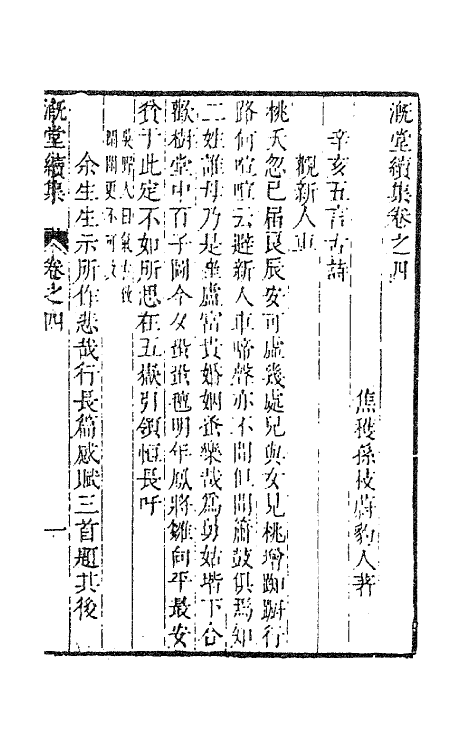 溉堂續集卷之四
焦穫孫枝蔚豹人著
辛亥五言古詩
觀新人車
桃夭忽已屆良辰安可虛幾處兒與女見桃增踟躕行
路何喧喧云避新人車啼聲亦不聞但聞簫鼓俱為如
二姓誰母乃是崔盧富貴婚姻蚤樂哉為舅姑堦下合
歡樹堂中百子圖今女蛩蛩氊明年鳳將雛向平最安
貧于此定不如所思在五嶽引領恒長吁
吳野人曰氣
閒閒更不可及
余生生示所作悲哉行長篇感賦三首題其後
溉堂續集 卷之四 一